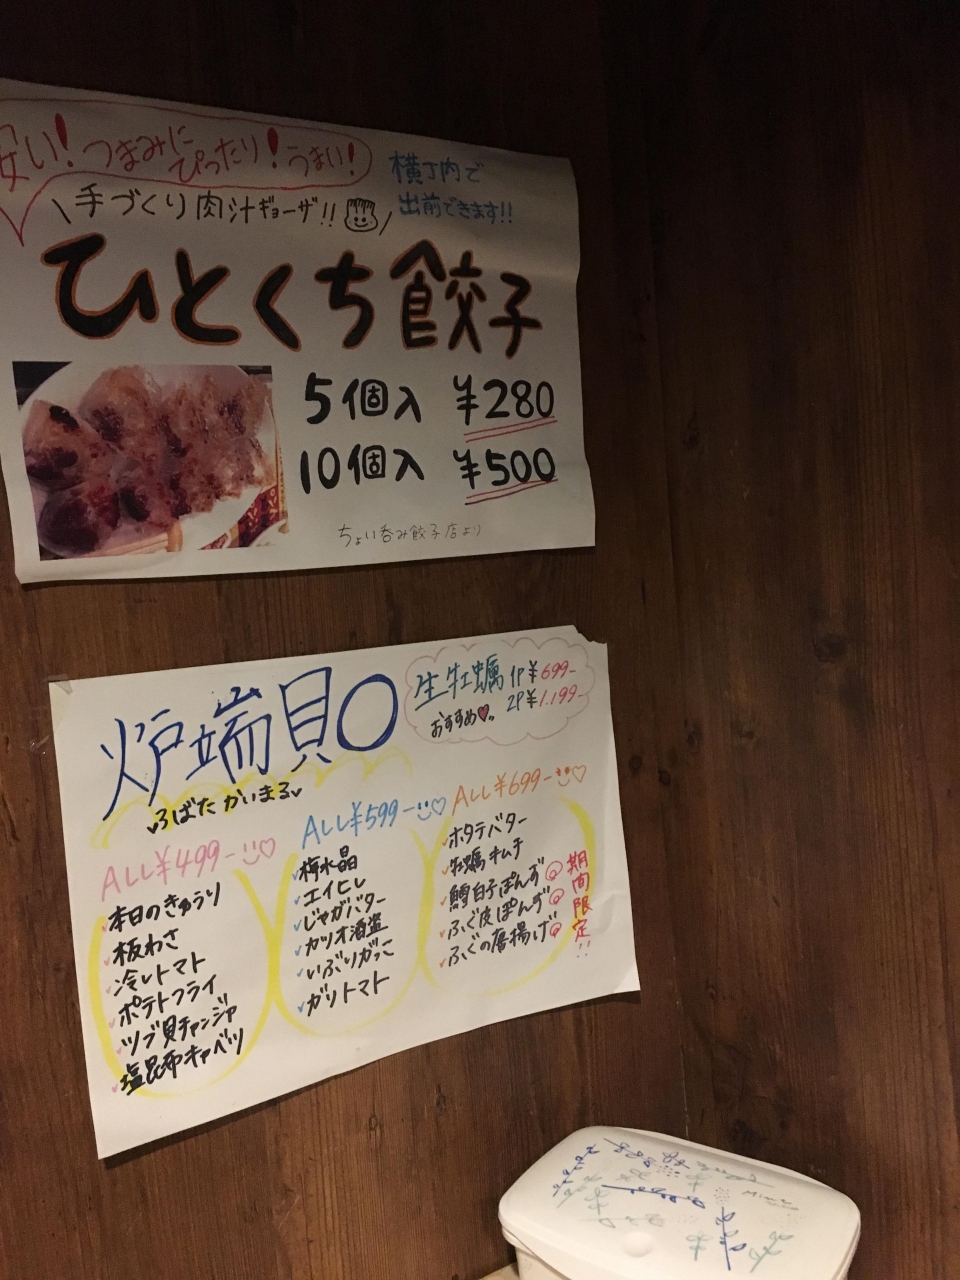 安い!つまみに
ぴったり!うまい!
横丁内で
出前できます!!
\手づくり肉汁ギョーザ!!/
ひとくち餃子
5個入 ¥280
10個入 ¥500
ちょい呑み餃子店より
炉端貝〇
ろばた かいまる
生牡蠣 1P¥699-
おすすめ♡ 2P¥1.199-
ALL¥499-
本日のきゅうり
板わさ
冷しトマト
ポテトフライ
ツブ貝チャンジャ
塩昆布キャベツ
ALL¥599-
梅水晶
エイヒレ
じゃがバター
カツオ酒盗
いぶりがっこ
ガリトマト
ALL¥699-
ホタテバター
牡蠣キムチ
鱈白子ぽんず
ふぐ皮ぽんず
ふぐの唐揚げ
期間限定!!